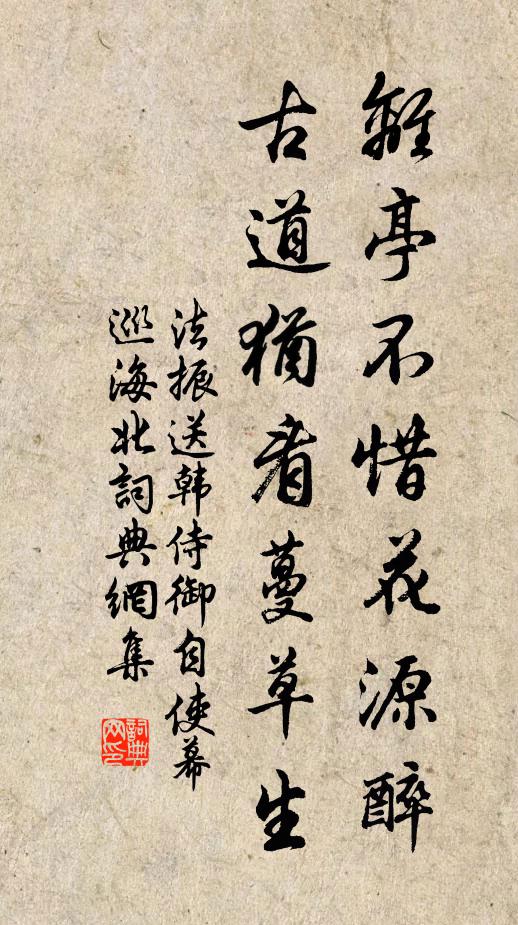 離亭不惜花源醉
古道猶看蔓草生
法振送韩侍御自使幕
巡海北詞典網集
詞典網印